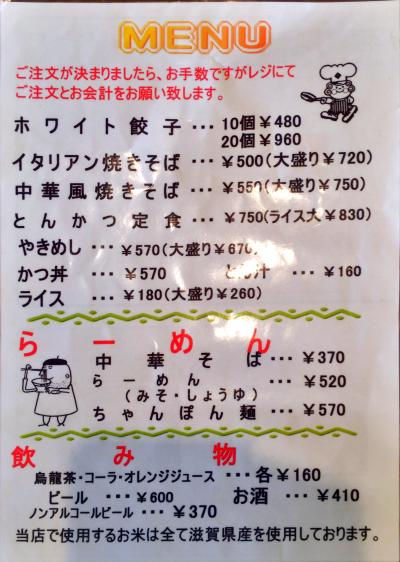 MENU
ご注文が決まりましたら、お手数ですがレジにて
ご注文とお会計をお願い致します。
ホワイト餃子・・・10個¥480
20個¥960
イタリアン焼きそば・・・¥500(大盛り¥720)
中華風焼きそば・・・¥550(大盛り¥750)
とんかつ定食・・・¥750(ライス大¥830)
やきめし・・・¥570(大盛り¥670)
かつ丼・・・¥570 とん汁・・・¥160
ライス・・・¥180(大盛り¥260)
らーめん
中華そば・・・¥370
らーめん・・・¥520
(みそ・しょうゆ)
ちゃんぽん麺・・・¥570
飲み物
烏龍茶・コーラ・オレンジジュース・・・各¥160
ビール・・・¥600 お酒・・・¥410
ノンアルコールビール・・・¥370
当店で使用するお米は全て滋賀県産を使用しております。